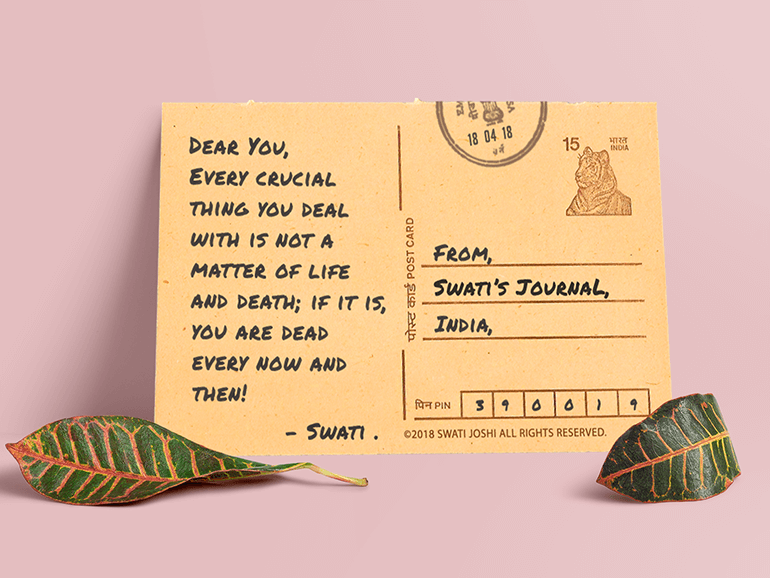 DEAR YOU,
EVERY CRUCIAL
THING YOU DEAL
WITH IS NOT A
MATTER OF LIFE
AND DEATH; IF IT IS,
YOU ARE DEAD
EVERY NOW AND
THEN!
- SWATI .
पोस्ट कार्ड POST CARD
18 04 18
15
भारत
INDIA
FROM,
SWATI'S JOURNAL,
INDIA,
पिन PIN 3 9 0 0 1 9
©2018 SWATI JOSHI ALL RIGHTS RESERVED.